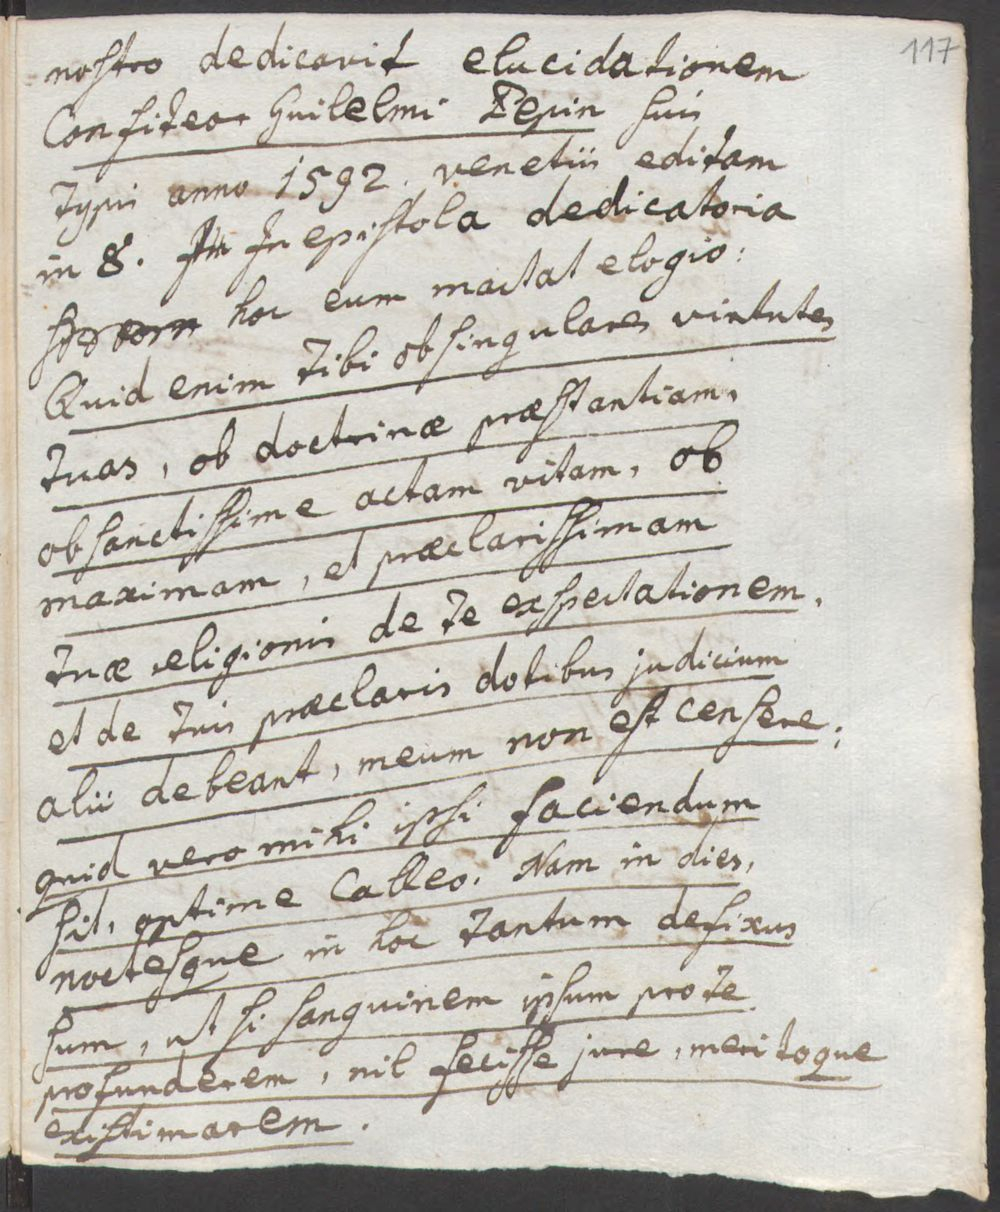 117
nostro dedicavit elucidationem
Confiteor Guilelmi Pepin suis
typis anno 1592. venetiis editam
in 8. In epistola dedicatoria
hoc eum mactat elogio:
Quid enim tibi ob singulares virtutes
tuas, ob doctrinæ præstantiam,
ob sanctissime actam vitam, ob
maximam, et præclarissimam
tuæ religionis de te exspectationem,
et de tuis præclaris dotibus judicium
alii debeant, meum non est censere;
quid vero mihi ipsi faciendum
sit, optime calleo. Nam in dies,
noctesque in hoc tantum defixus
sum, ut si sanguinem ipsum pro te
profunderem, nil fecisse jure, meritoque
existimarem.